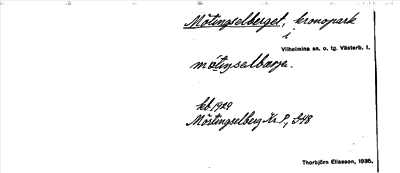 Mötingselberget, kronopark
i
Vilhelmina sn. o. tg. Västerb. l.
mötinselbærje.
kb 1929
Möstingselberg Kr P, 548
Thorbjörn Eliasson, 1935.